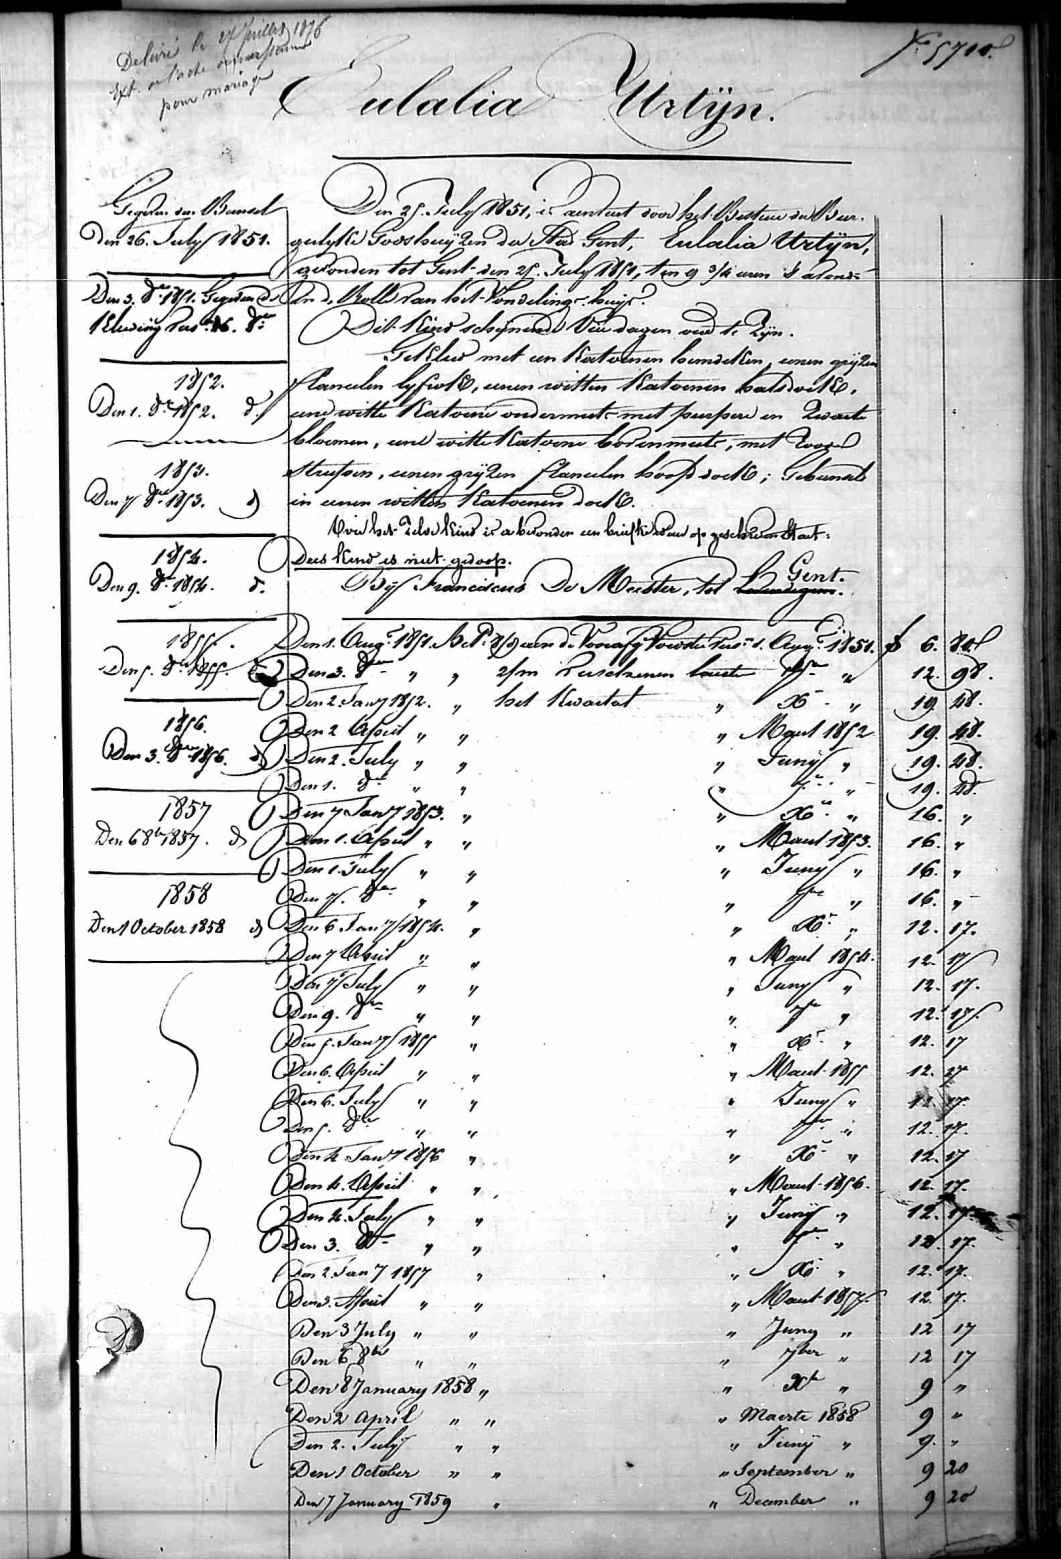 Délivré le 27 Juillet 1876
Ext. on l'acte
pour mariage
N° 5700.
Eulalia Urtijn.
Gegeven den Bundel
Den 26. July 1851.
Den 3. 8re 1851. Gegeven de
Kleeding
1852.
Den 1. 8re 1852. d.
1853.
Den 7 8re 1853. d
1854.
Den 9. 8re 1854. d.
1855.
Den 5. 8re 1855.
1856.
Den 3. 8re 1856. d
1857
Den 6 8bre 1857. d
1858
Den 1 October 1858 d
Den 25. July 1851, is aenveert door het Bestuer der Bur-
gerlyke Godshuyzen der Stad Gent, Eulalia Urtijn,
gevonden tot Gent den 25. July 1851, ten 9 3/4 uren 's avonds
in de Rolle van het Vondelingshuys.
Dit kind schynende dagen oud te Zyn.
Gekleed met een Katoenen hemdeken, eenen gryzen
flanelen lyfdoek, eenen witten Katoenen halsdoek,
eene witte Katoene ondermuts met purpere en Zwarte
bloemen, eene witte Katoene bovenmuts, met
, eenen gryzen flanelen hoofddoek; Gebundeld
in eenen witten Katoenen doek.
het Zelve kind is gevonden een briefke waer op geschreven Staet:
Dees kind is niet gedoopt.
By Franciscus De Meester, tot Gent.
Den 1. Augt 1851. 1. Augt 1851. f 6. 80
Den 3. 8re " " 7re " 12. 98.
Den 2 Jany 1852. " het kwartael " Xr " 19. 48.
Den 2 April " " " Maert 1852 19. 48.
Den 2. July " " " Juny " 19. 48.
Den 1. 8re " " " 7re " 19. 48.
Den 7 Jany 1853. " " Xr " 16. "
Den 1. April " " " Maert 1853. 16. "
Den 1. July " " " Juny " 16. "
Den 7. 8re " " " 7re " 16. "
Den 6 Jany 1854. " " Xr " 12. 17.
Den 7 April " " " Maert 1854. 12. 17
Den 7 July " " " Juny " 12. 17.
Den 9. 8re " " " 7re " 12. 17.
Den 5. Jany 1855 " " Xr " 12. 17
Den 6. April " " " Maert 1855 12. 17
Den 6. July " " " Juny " 12. 17.
Den 5. 8re " " " 7re " 12. 17.
Den 4 Jany 1856 " " Xr " 12. 17
Den 4. April " " " Maert 1856. 12. 17.
Den 4. July " " " Juny " 12. 17.
Den 3. 8re " " " 7re " 12. 17.
Den 2 Jany 1857 " " Xr " 12. 17.
Den 3. April " " " Maert 1857. 12 17.
Den 3 July " " " Juny " 12 17
Den 6 8bre " " " 7ber " 12 17
Den 8 January 1858 " " Xr " 9 "
Den 2 April " " " Maerte 1858 9 "
Den 2. July " " " Juny " 9. "
Den 1 October " " " September " 9 20
Den 7 January 1859 " " December " 9 20